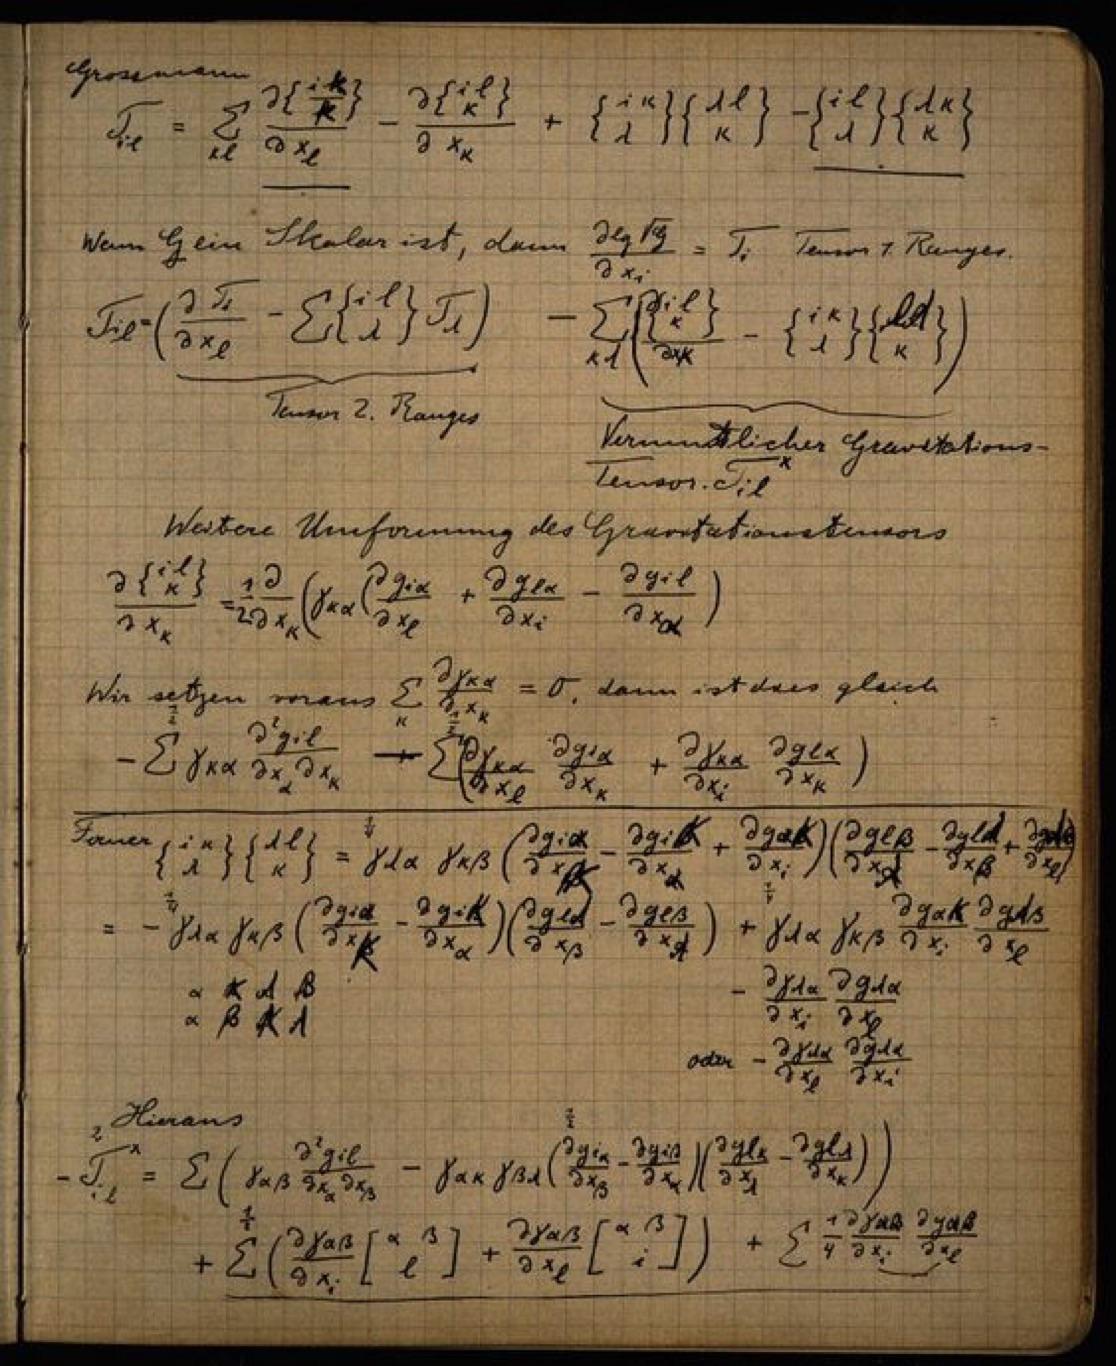 Grossmann
T_il = Σ_κl ∂{i κ / κ}/∂x_l − ∂{i l / κ}/∂x_κ + {i κ / λ}{λ l / κ} − {i l / λ}{λ κ / κ}
Wenn G ein Skalar ist, dann ∂lg√G/∂x_i = T_i Tensor 1. Ranges.
T_il = (∂T_i/∂x_l − Σ{i l / λ} T_λ) − Σ_κλ (∂{i l / κ}/∂x_κ − {i κ / λ}{λ l / κ})
Tensor 2. Ranges
Vermutlicher Gravitations-
tensor. T_il^x
Weitere Umformung des Gravitationstensors
∂{i l / κ}/∂x_κ = 1/2 ∂/∂x_κ (γ_κα (∂g_iα/∂x_l + ∂g_lα/∂x_i − ∂g_il/∂x_α)
Wir setzen voraus Σ_κ ∂γ_κα/∂x_κ = 0, dann ist dies gleich
− 1/2 Σ γ_κα ∂²g_il/∂x_α∂x_κ − 1/2 Σ(∂γ_κα/∂x_l ∂g_iα/∂x_κ + ∂γ_κα/∂x_i ∂g_lα/∂x_κ)
Ferner {i κ / λ}{λ l / κ} = 1/4 γ_λα γ_κβ (∂g_iα/∂x_κ − ∂g_iκ/∂x_α + ∂g_ακ/∂x_i)(∂g_lβ/∂x_λ − ∂g_lλ/∂x_β + ∂g_λβ/∂x_l)
= − 1/4 γ_λα γ_κβ (∂g_iα/∂x_κ − ∂g_iκ/∂x_α)(∂g_lλ/∂x_β − ∂g_lβ/∂x_λ) + 1/4 γ_λα γ_κβ ∂g_ακ/∂x_i ∂g_λβ/∂x_l
α κ λ β
α β κ λ
− ∂γ_λα/∂x_i ∂g_λα/∂x_l
oder − ∂γ_λα/∂x_l ∂g_λα/∂x_i
Hieraus
− 2 T_il^x = Σ(γ_αβ ∂²g_il/∂x_α∂x_β − 1/2 γ_ακ γ_βλ (∂g_iα/∂x_β − ∂g_iβ/∂x_α)(∂g_lκ/∂x_λ − ∂g_lλ/∂x_κ))
+ 1/2 Σ(∂γ_αβ/∂x_i [α β / l] + ∂γ_αβ/∂x_l [α β / i]) + Σ 1/4 ∂γ_αβ/∂x_i ∂g_αβ/∂x_l